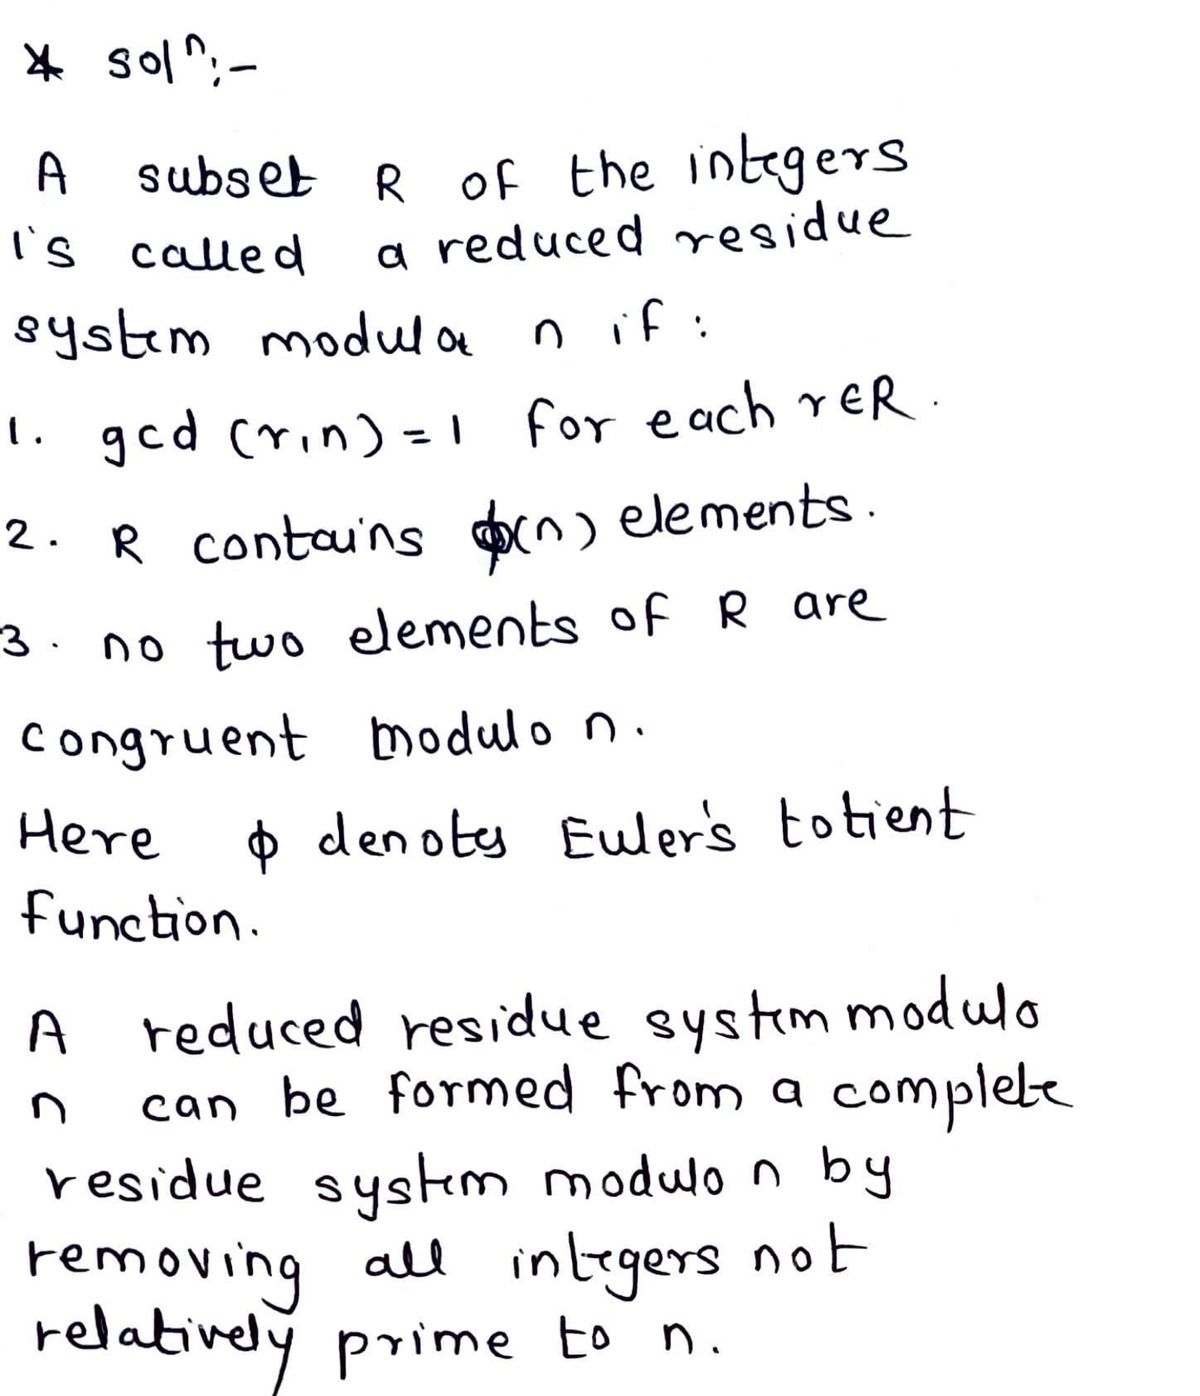 * solⁿ:-
A subset R of the integers
is called a reduced residue
system modulo n if :
1. gcd (r,n) = 1 for each r∈R.
2. R contains ϕ(n) elements.
3. no two elements of R are
congruent modulo n.
Here ϕ denotes Euler's totient
function.
A reduced residue system modulo
n can be formed from a complete
residue system modulo n by
removing all integers not
relatively prime to n.